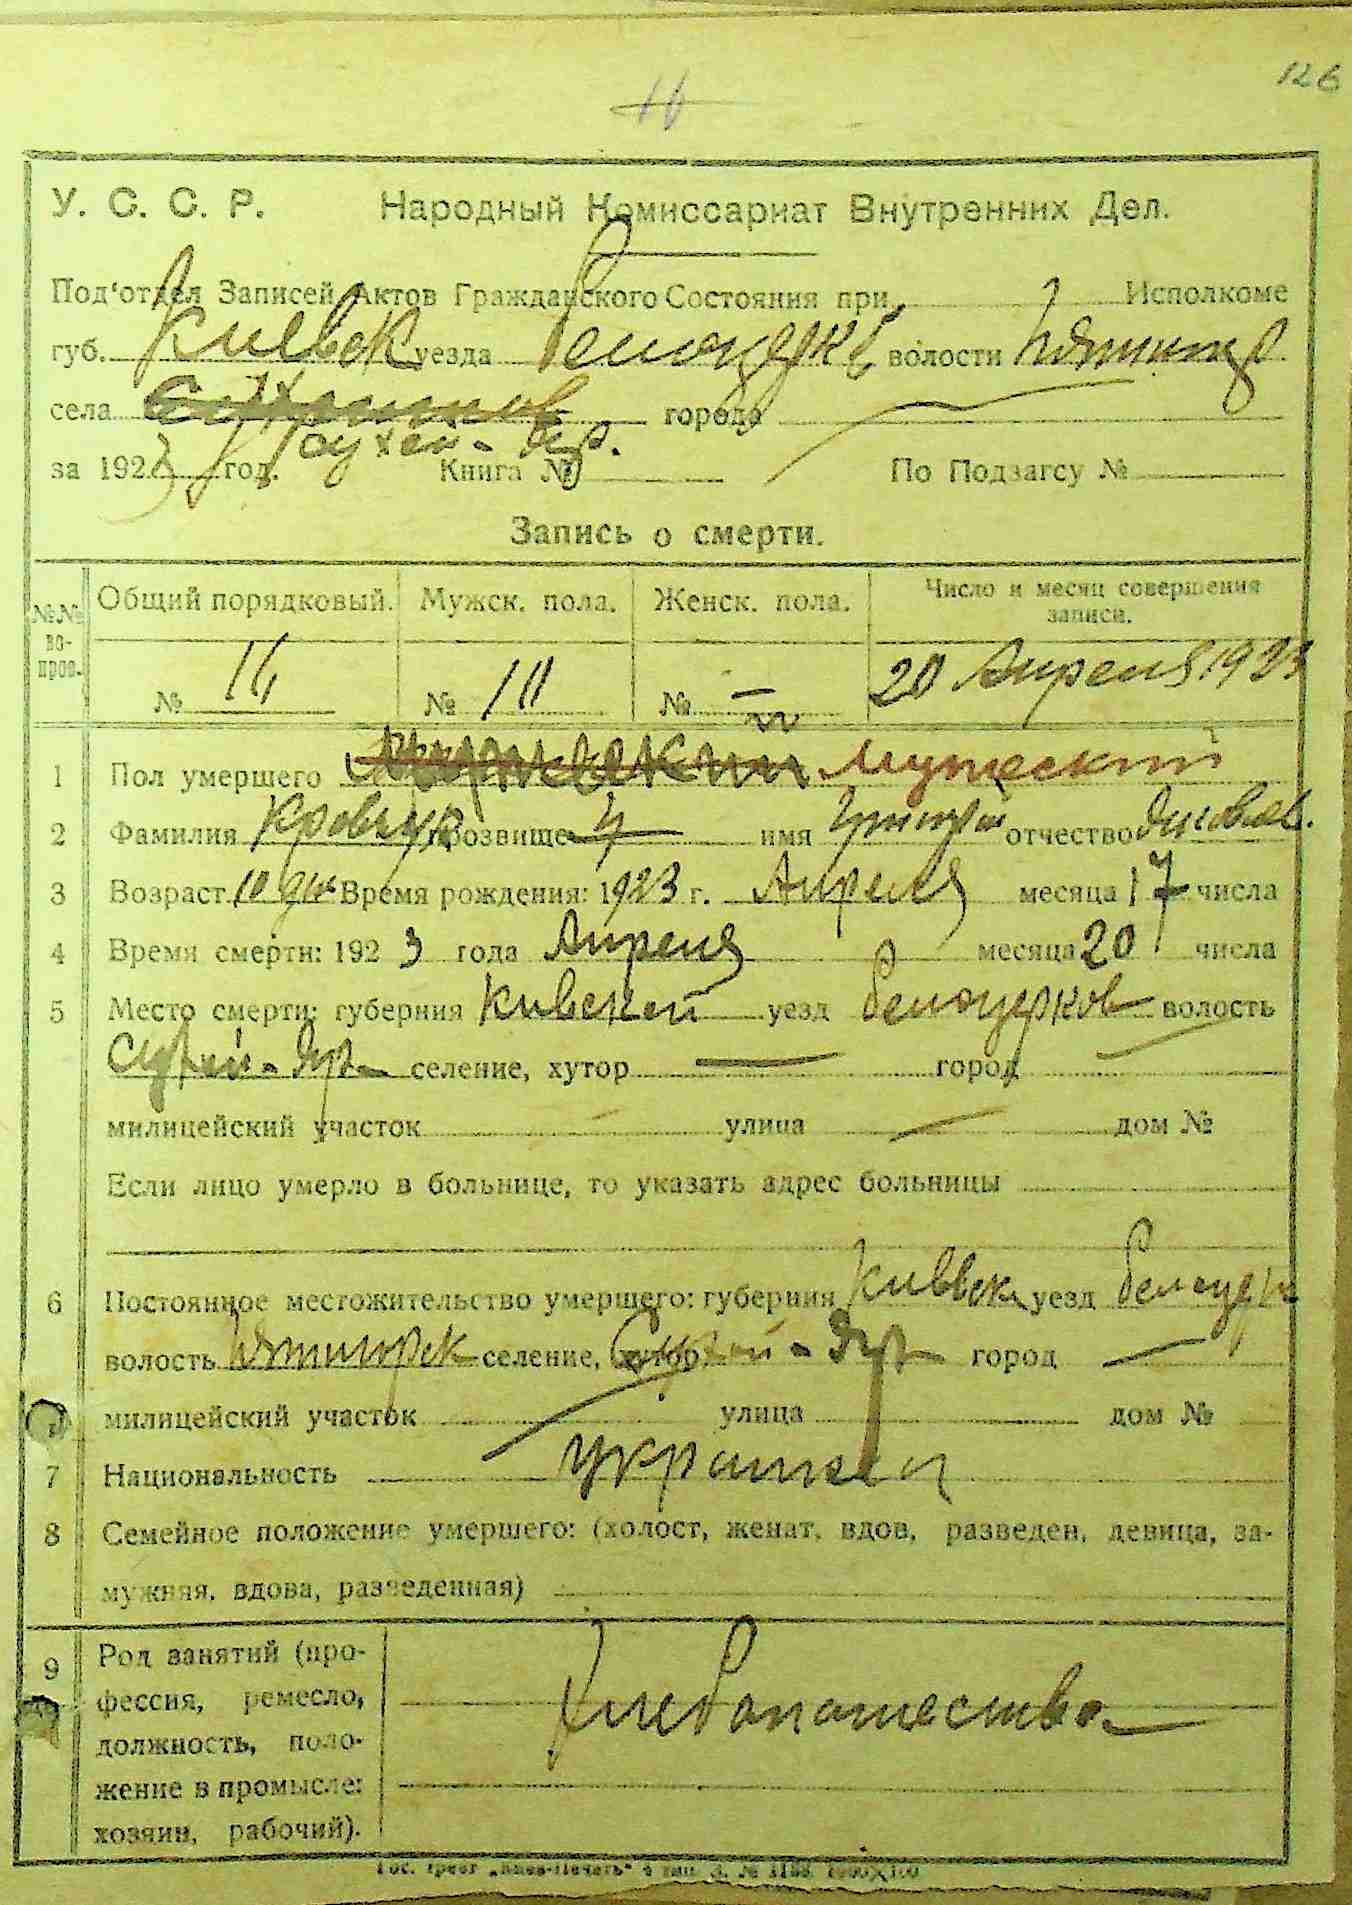 126
У. С. С. Р. Народный Комиссариат Внутренних Дел.
Под'отдел Записей Актов Гражданского Состояния при Исполкоме
губ. Киевск уезда Белоцеркв волости
села города
за 1923 год. Книга № По Подзагсу №
Запись о смерти.
№№ вопров. Общий порядковый. Мужск. пола. Женск. пола. Число и месяц совершения записи.
№ № № — 20 Апреля 1923
1 Пол умершего Мужеский
2 Фамилия прозвище имя отчество
3 Возраст 10 Время рождения: 1923 г. Апреля месяца 17 числа
4 Время смерти: 1923 года Апреля месяца 20 числа
5 Место смерти: губерния Кивской уезд Белоцерков волость
Сухой-Яр селение, хутор — город
милицейский участок улица — дом №
Если лицо умерло в больнице, то указать адрес больницы
6 Постоянное местожительство умершего: губерния Киевск уезд Белоцерк
волость Пятигорск селение, хутор Сухой-Яр город —
милицейский участок улица дом №
7 Национальность украинец
8 Семейное положение умершего: (холост, женат, вдов, разведен, девица, за-
мужняя, вдова, разведенная)
9 Род занятий (про-
фессия, ремесло,
должность, поло-
жение в промысле:
хозяин, рабочий).
Хлебопашество